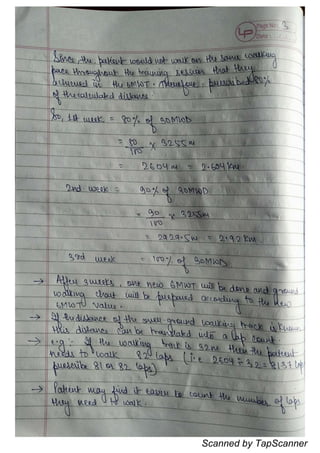 Page No: 3
Date:
Since the patient would not walk on the same walking
pace throughout the training session that they
achieved in the 6MWT. Therefore, prescribe 80%
of the calculated distance.
So, 1st week = 80% of 30MWD
= 80/100 x 3255m
= 2604 m = 2.604 Km
2nd week = 90% of 30MWD
= 90/100 x 3255m
= 2929.5m = 2.92 Km
3rd week = 100% of 30MWD
→ After 3 weeks, one new 6MWT will be done and ground
walking chart will be prepared according to the new
6MWT value.
→ If the distance of the ground walking track is known
this distance can be translated into a lap count
→ e.g:- If the walking track is 32m then the patient
needs to walk 82 laps (i.e 2604 ÷ 32 = 81.37
prescribe 81 or 82 laps)
→ Patient may find it easier to count the number of laps
they need to walk.
Scanned by TapScanner